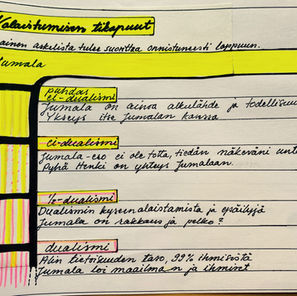 Valaistumisen tikapuut
ainen askelista tulee suorittaa onnistuneesti loppuun.
Jumala
puhdas
ei-dualismi
Jumala on ainoa alkulähde ja todellisuu
Ykseys itse Jumalan kanssa
ei-dualismi
Jumala-ero ei ole totta, tiedän näkeväni unta
Pyhä Henki on yhteys Jumalaan.
½-dualismi
Dualismin kyseenalaistamista ja epäilyjä
Jumala on rakkaus ja pelko?
dualismi
Alin tietoisuuden taso, 99% ihmisistä
Jumala loi maailman ja ihmiset